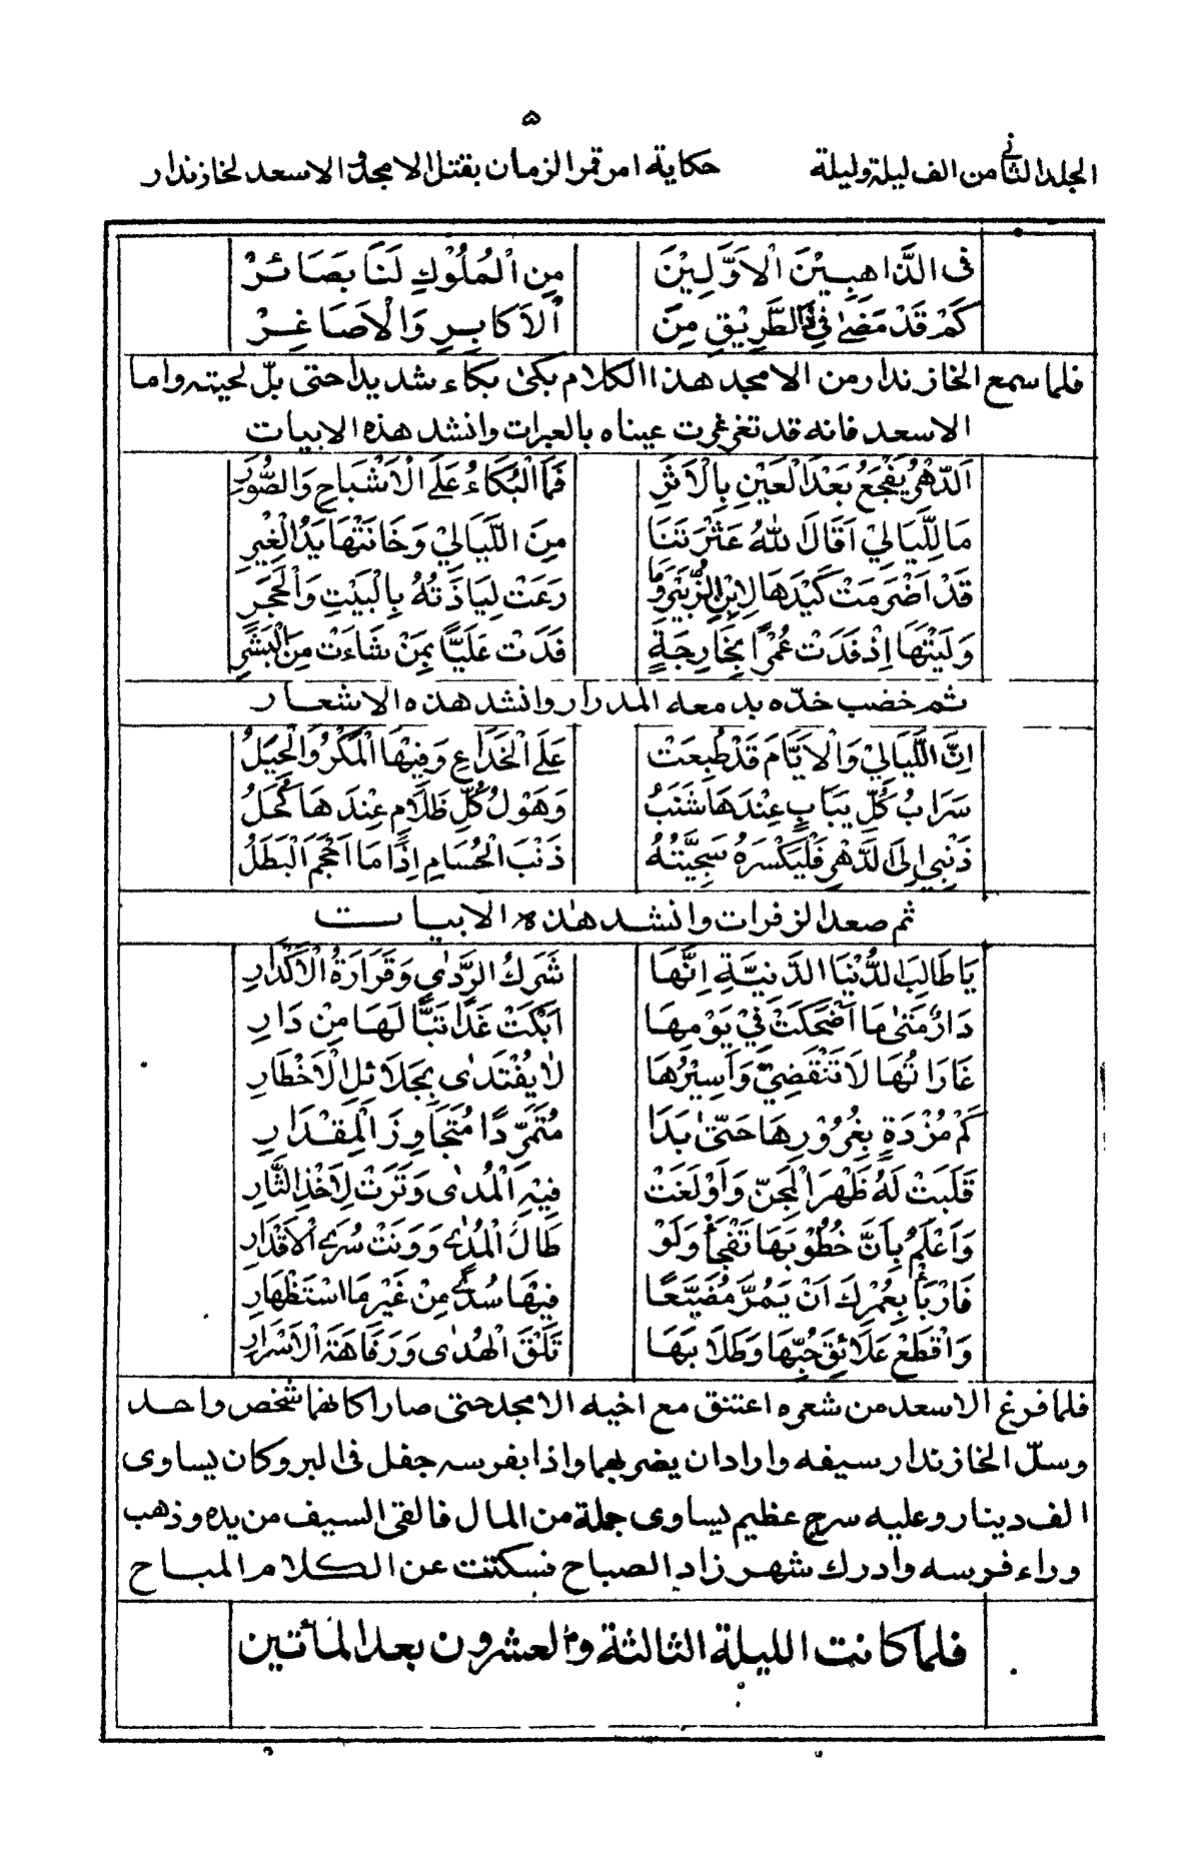 ۵
المجلد الثانى من الف ليلة وليلة حكاية امر قمر الزمان بقتل الامجد والاسعد لخازندار
فِى الذَّاهِبِيْنَ الْاَوَّلِيْنَ مِنَ الْمُلُوْكِ لَنَا بَصَائِرْ
كَمْ قَدْ مَضٰى فِى ذَا الطَّرِيْقِ مِنَ الْاَكَابِرِ وَالْاَصَاغِرْ
فلما سمع الخازندار من الامجد هذا الكلام بكى بكاء شديدا حتى بلّ لحيته واما
الاسعد فانه قد تغرغرت عيناه بالعبرات وانشد هذه الابيات
اَلدَّهْرُ يَفْجَعُ بَعْدَ الْعَيْنِ بِالْاَثَرِ فَمَا الْبُكَاءُ عَلَى الْاَشْبَاحِ وَالصُّوَرِ
مَا لِلَّيَالِيْ اَقَالَ اللهُ عَثْرَتَنَا مِنَ اللَّيَالِيْ وَخَانَتْهَا يَدُ الْغِيَرِ
قَدْ اَضْرَمَتْ كَيْدَهَا لِابْنِ الزُّبَيْرِ وَمَا رَعَتْ لِيَاذَتُهُ بِالْبَيْتِ وَالْحَجَرِ
وَلَيْتَهَا اِذْ فَدَتْ عُمْرًا بِخَارِجَةٍ فَدَتْ عَلَيًّا بِمَنْ شَاءَتْ مِنَ الْبَشَرِ
ثم خضب خدّه بدمعه المدرار وانشد هذه الاشعار
اِنَّ اللَّيَالِيْ وَالْاَيَّامَ قَدْ طُبِعَتْ عَلَى الْخَدَاعِ وَفِيْهَا الْمَكْرُ وَالْحِيَلُ
سَرَابُ كُلِّ يَبَابٍ عِنْدَهَا شَنَبُ وَهَوْلُ كُلِّ ظَلَامٍ عِنْدَهَا كُحَلُ
ذَنْبِيْ اِلَى الدَّهْرِ فَلْيَكْرَهْ سَجِيَّتُهُ ذَنْبَ الْحُسَامِ اِذَا مَا اَحْجَمَ الْبَطَلُ
ثم صعد الزفرات وانشد هٰذه الابيات
يَا طَالِبَ الدُّنْيَا الدَّنِيَّةِ اِنَّهَا شَرَكُ الرَّدٰى وَقَرَارَةُ الْاَكْدَارِ
دَارٌ مَتٰى مَا اَضْحَكَتْ فِيْ يَوْمِهَا اَبْكَتْ غَدًا تَبًّا لَهَا مِنْ دَارِ
غَارَاتُهَا لَا تَنْقَضِيْ وَاَسِيْرُهَا لَا يُفْتَدٰى بِجَلَائِلِ الْاَخْطَارِ
كَمْ مُزْدَهٍ بِغُرُوْرِهَا حَتّٰى بَدَا مُتَمَرِّدًا مُتَجَاوِزَ الْمِقْدَارِ
قَلَبَتْ لَهُ ظَهْرَ الْمِجَنِّ وَاَوْلَغَتْ فِيْهِ الْمُدٰى وَتَرَتْ لِاَخْذِ الثَّارِ
وَاعْلَمْ بِاَنَّ خُطُوْبَهَا تَفْجَأُ وَلَوْ طَالَ الْمُدٰى وَوَنَتْ سُرَى الْاَقْدَارِ
فَارْبَأْ بِعُمْرِكَ اَنْ يَمُرَّ مُضَيَّعًا فِيْهَا سُدًى مِنْ غَيْرِ مَا اسْتَظْهَارِ
وَاقْطَعْ عَلَائِقَ حُبِّهَا وَطِلَابَهَا تَلْقَ الْهُدٰى وَرَفَاهَةَ الْاَسْرَارِ
فلما فرغ الاسعد من شعره اعتنق مع اخيه الامجد حتى صارا كانهما شخص واحد
وسلّ الخازندار سيفه وارادان يضربهما واذا بفرسه جفل فى البر وكان يساوى
الف دينار وعليه سرج عظيم يساوى جملة من المال فالقى السيف من يده وذهب
وراء فرسه وادرك شهر زاد الصباح فسكتت عن الكلام المباح
فلما كانت الليلة الثالثة والعشرون بعد المأتين